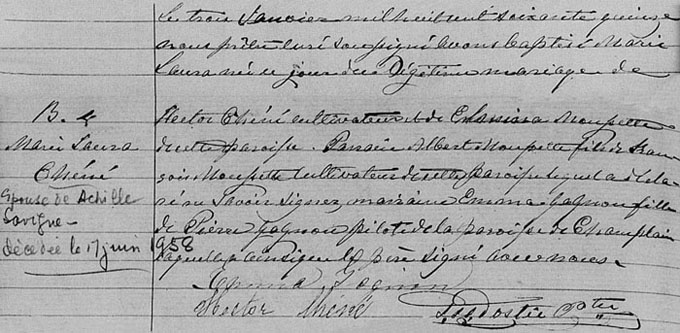 Le trois Janvier mil huit cent soixante quinze
nous prêtre curé soussigné avons baptisé Marie
Laura née ce jour du légitime mariage de
B. 4
Marie Laura
Chéné
Epouse de Achille
Lavigne
décédée le 17 juin 1958
Hector Chéné cultivateur et de Mongette
de cette paroisse. Parrain Albert Mongette fils de Fran
çois Mongette cultivateur de cette paroisse lequel a décla
ré ne savoir signer, marraine Emma Gagnon fille
de Pierre Gagnon pilote de la paroisse de Champlain
laquelle a ainsi que le père signé avec nous.
Emma Gagnon
Hector Chéné
Dostie Ptre